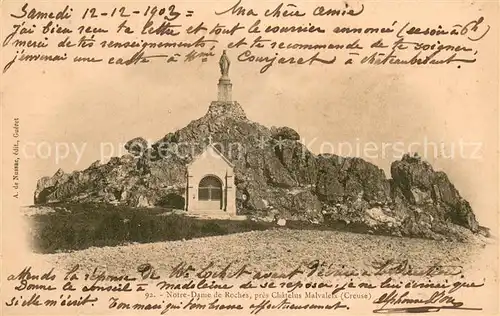 Samedi 12-12-1903 = Ma chère amie
j'ai bien reçu ta lettre et tout le courrier annoncé (ce soir à 6h)
merci de tes renseignements et te recommande de te soigner,
j'enverrai une carte à Mme Courjaret à châteaubriant
A. de Nussac, édit., Guéret
attends la réponse de Mr Lochet avant
Donne le conseil à madeleine de se reposer je ne lui écrirai que
92. - Notre-Dame de Roches, près Châtelus Malvaleix (Creuse)
si elle m'écrit. Ton mari qui t'embrasse affectueusement